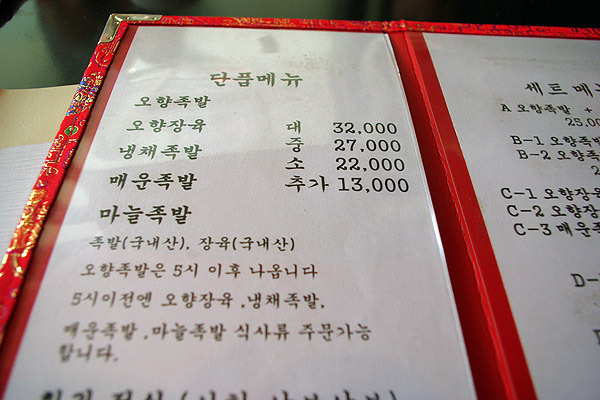 단품메뉴
오향족발
오향장육 대 32,000
냉채족발 중 27,000
매운족발 소 22,000
추가 13,000
마늘족발
족발(국내산), 장육(국내산)
오향족발은 5시 이후 나옵니다
5시이전엔 오향장육 ,냉채족발,
매운족발 ,마늘족발 식사류 주문가능
합니다.
세트메뉴
A 오향족발 +
25,00
B-1 오향족
B-2 오향족
2
C-1 오향장
C-2 오향장
C-3 매운족
D-